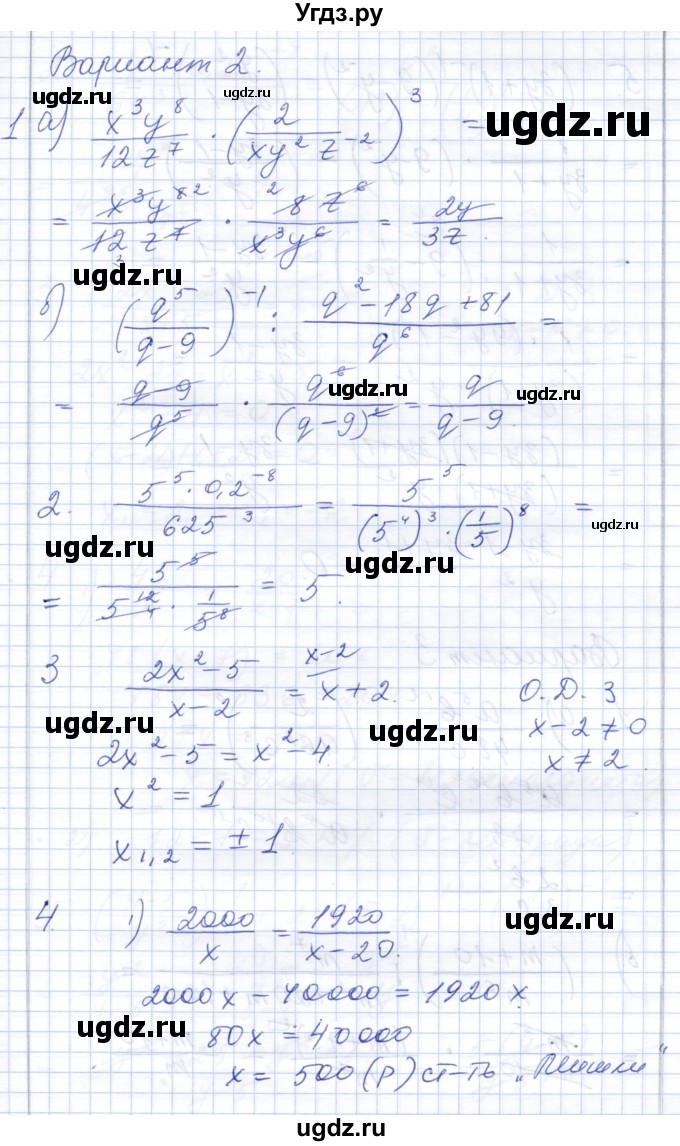 Угдз.ру
Вариант 2.
ugdz.ru ugdz.ru
1 а) x³y⁸/12z⁷ · (2/xy²z⁻²)³ =
= x³y⁸²/12₃z⁷ · ²8z⁶/x³y⁶ = 2y/3z.
ugdz.ru ugdz.ru
б) (q⁵/q-9)⁻¹ : q²-18q+81/q⁶ =
ugdz.ru ugdz.ru
= q-9/q⁵ · q⁶/(q-9)² = q/q-9.
ugdz.ru
2. 5⁵·0,2⁻⁸/625³ = 5⁵/(5⁴)³·(1/5)⁸ =
ugdz.ru ugdz.ru ugdz.ru
= 5⁵/5¹²₄·1/5⁸ = 5.
3 2x²-5/x-2 = x-2/x+2. О.Д.З
x-2≠0
ugdz.ru ugdz.ru
2x²-5=x²-4. x≠2.
x²=1.
x₁,₂=±1.
4. 1) 2000/x = 1920/x-20.
ugdz.ru
2000x-40000=1920x
ugdz.ru
80x=40000
x= 500(р) ст-ть
ugdz.ru
ugdz.ru